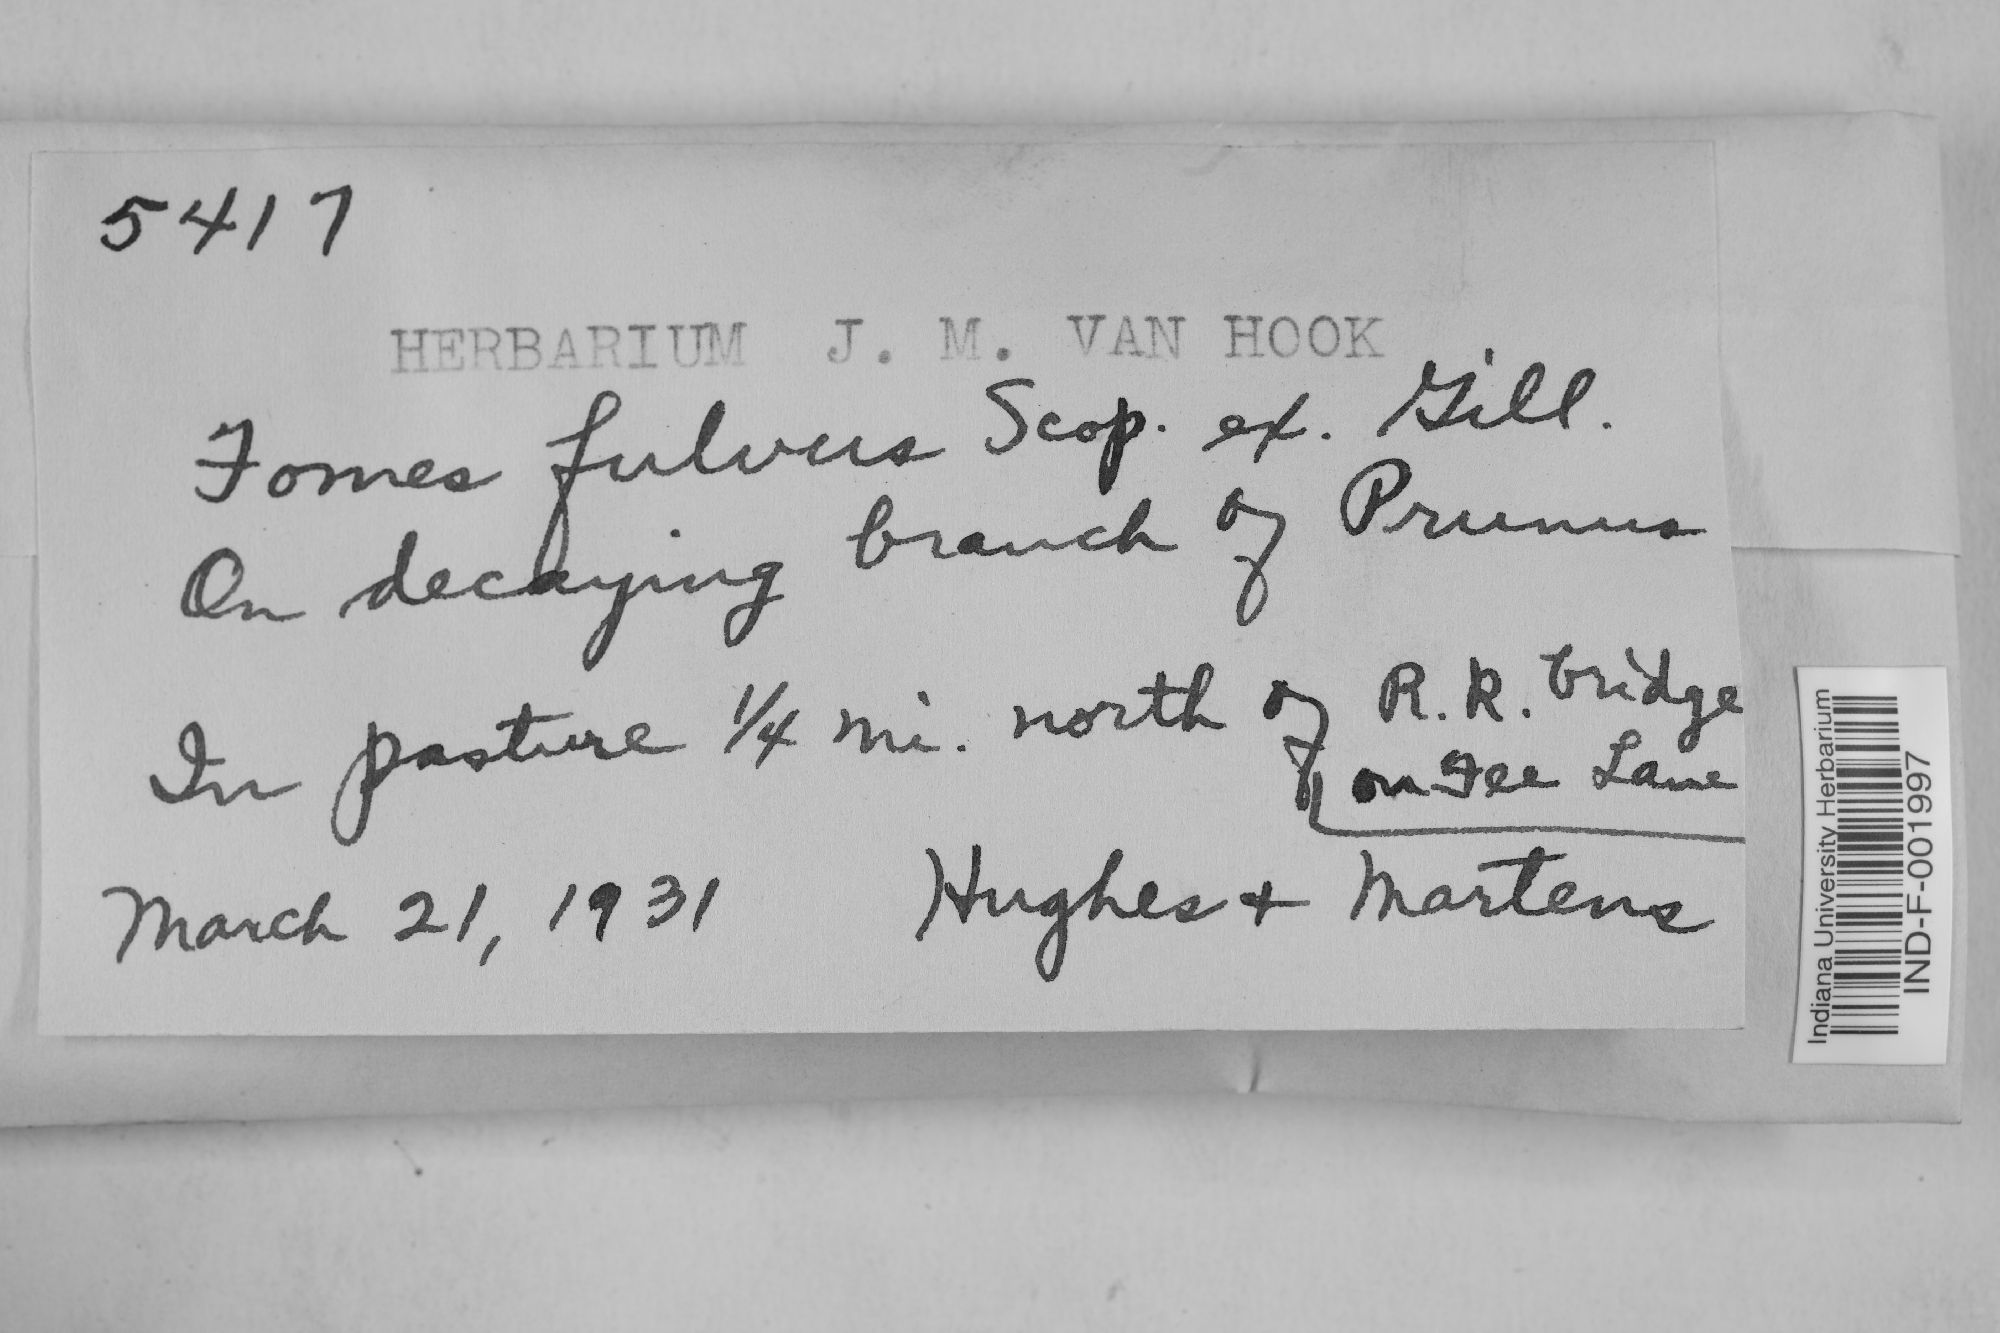 5417
HERBARIUM J. M. VAN HOOK
Fomes fulvus Scop. ex. Gill.
On decaying branch of Prunus
In pasture 1/4 mi. north of R.R. bridge
on Fee Lane
March 21, 1931 Hughes + Martens
Indiana University Herbarium
IND-F-001997